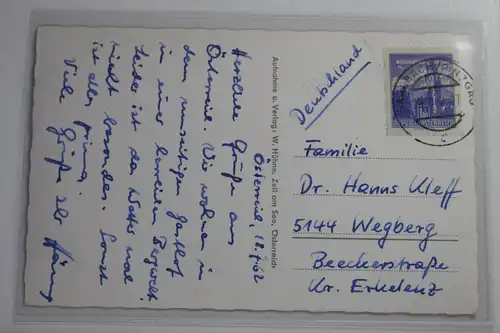 Österreich, 18.7.62
Herzliche Grüße aus
Österreich. Wir wohnen in
dem umseitigen Gasthof
in einer herrlichen Bergwelt
Leider ist das Wetter mal
nicht besonders. Sonst
ist alles prima.
Viele Grüße
Aufnahme u. Verlag: W. Hühne, Zell am See, Österreich
Deutschland
Familie
Dr. Hanns Kleff
5144 Wegberg
Beeckerstraße
Kr. Erkelenz
PINZGAU